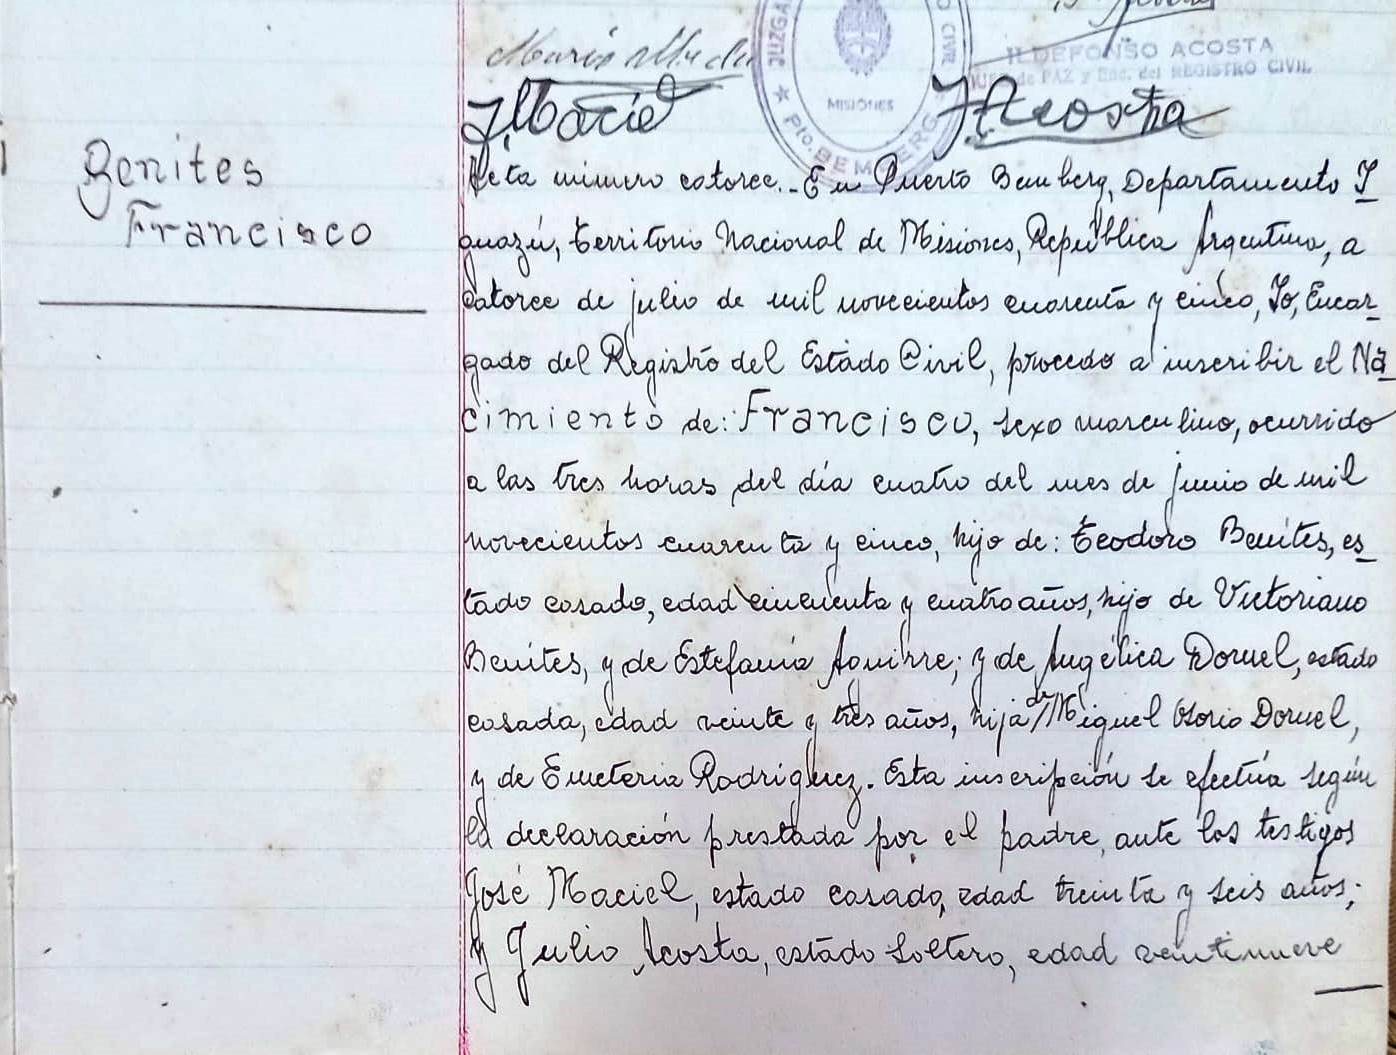 JUZGA
O CIVIL
MISIONES
Pto. BEMBERG
ILDEFONSO ACOSTA
JUEZ de PAZ y Enc. del REGISTRO CIVIL
JMaciel
JAcosta
Benites
Francisco
Acta número catorce. - En Puerto Bemberg, Departamento I_
guazú, territorio Nacional de Misiones, República Argentina, a
catorce de julio de mil novecientos cuarenta y cinco, Yo, Encar_
gado del Registro del Estado Civil, procedo a inscribir el Na_
cimiento de: Francisco, sexo masculino, ocurrido
a las tres horas del día cuatro del mes de junio de mil
novecientos cuarenta y cinco, hijo de: Teodoro Benites, es_
tado casado, edad cincuenta y cuatro años, hijo de Victoriano
Benites, y de Estefanía Aguirre; y de Angélica Dornel, estado
casada, edad veinte y tres años, hija de Miguel Osorio Dornel,
y de Emeteria Rodriguez. Esta inscripción se efectúa según
la declaración prestada por el padre, ante los testigos
José Maciel, estado casado, edad treinta y seis años;
y Julio Acosta, estado soltero, edad veintinueve